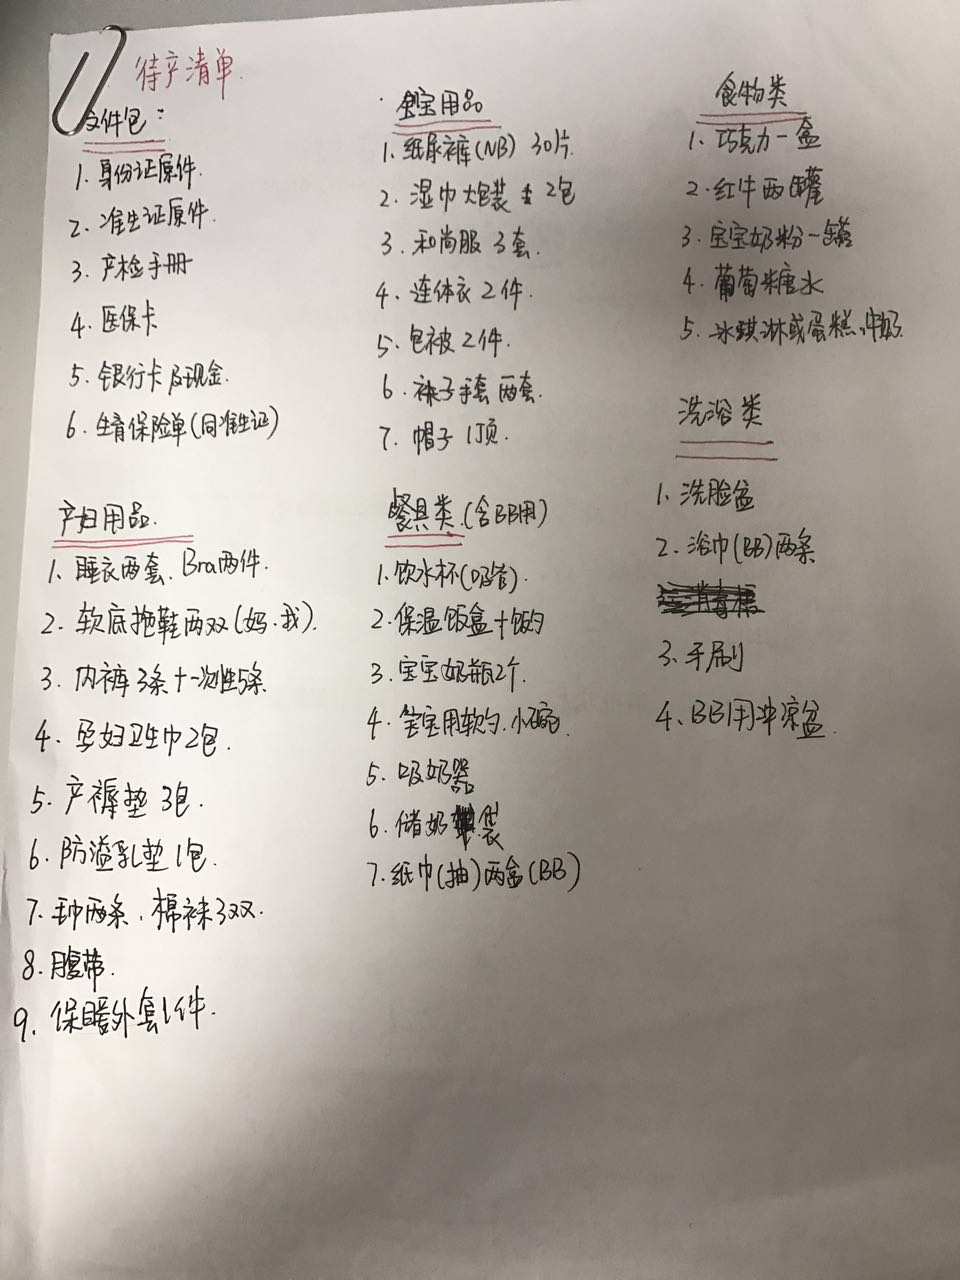 待产清单.
文件包:
1. 身份证原件.
2. 准生证原件.
3. 产检手册
4. 医保卡
5. 银行卡及现金.
6. 生育保险单(同准生证)
宝宝用品
1. 纸尿裤(NB) 30片.
2. 湿巾大包装 2包
3. 和尚服 3套.
4. 连体衣 2件.
5. 包被 2件.
6. 袜子手套 两套.
7. 帽子 1顶.
食物类
1. 巧克力一盒
2. 红牛两罐
3. 宝宝奶粉一罐
4. 葡萄糖水
5. 冰琪淋或蛋糕、牛奶.
洗浴类
1. 洗脸盆
2. 浴巾(BB)两条
3. 牙刷
4. BB用冲凉盆.
产妇用品.
1. 睡衣两套、Bra两件.
2. 软底拖鞋两双(妈.我).
3. 内裤3条+一次性5条
4. 孕妇卫生巾2包.
5. 产褥垫 3包.
6. 防溢乳垫1包.
7. 毛巾两条、棉袜3双.
8. 腹带.
9. 保暖外套1件.
餐具类.(含BB用)
1. 饮水杯(吸管).
2. 保温饭盒+饭勺
3. 宝宝奶瓶2个.
4. 宝宝用软勺.小碗.
5. 吸奶器
6. 储奶袋
7. 纸巾(抽)两盒(BB)